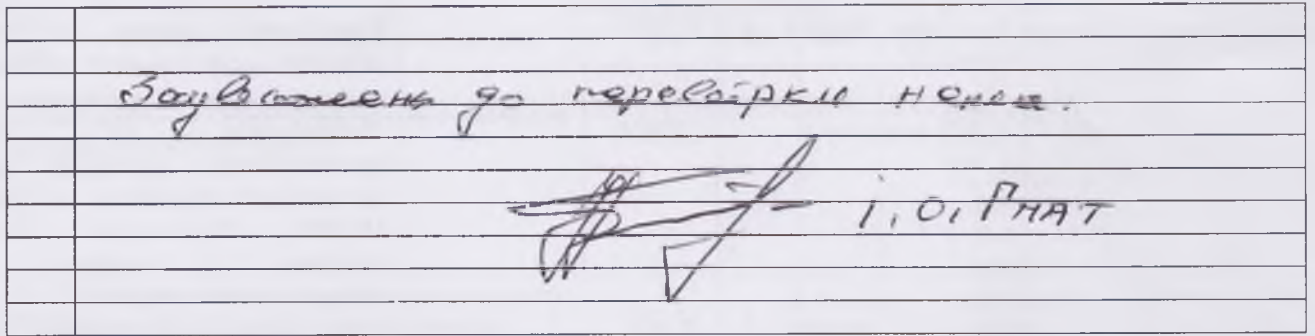 Зауважень до перевірки немає.
І.О. Гнат